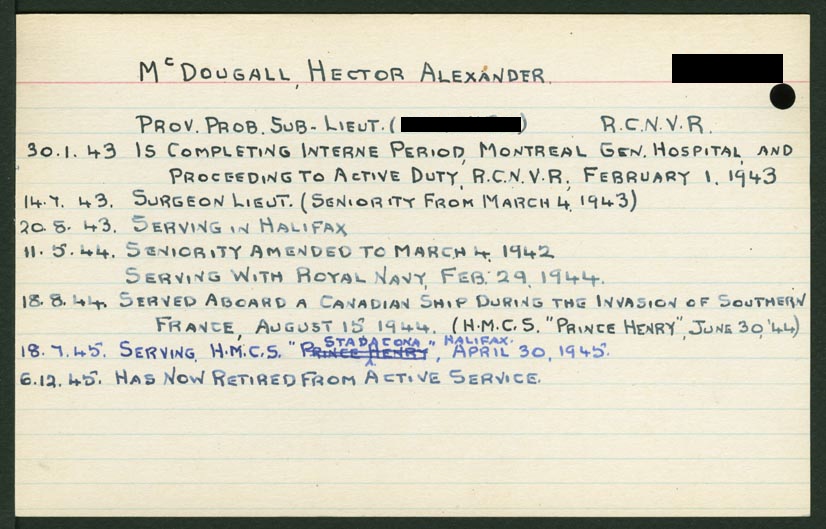 McDOUGALL, HECTOR ALEXANDER.
PROV. PROB. SUB-LIEUT. ( ) R.C.N.V.R.
30.1.43 IS COMPLETING INTERNE PERIOD, MONTREAL GEN. HOSPITAL, AND
PROCEEDING TO ACTIVE DUTY, R.C.N.V.R., FEBRUARY 1, 1943
14.7.43. SURGEON LIEUT. (SENIORITY FROM MARCH 4, 1943)
20.8.43. SERVING IN HALIFAX
11.5.44. SENIORITY AMENDED TO MARCH 4, 1942
SERVING WITH ROYAL NAVY, FEB. 29, 1944.
18.8.44. SERVED ABOARD A CANADIAN SHIP DURING THE INVASION OF SOUTHERN
FRANCE, AUGUST 15 1944. (H.M.C.S. "PRINCE HENRY", JUNE 30, '44)
STADACONA" HALIFAX.
18.7.45. SERVING, H.M.C.S. "PRINCE HENRY", APRIL 30, 1945.
6.12.45. HAS NOW RETIRED FROM ACTIVE SERVICE.